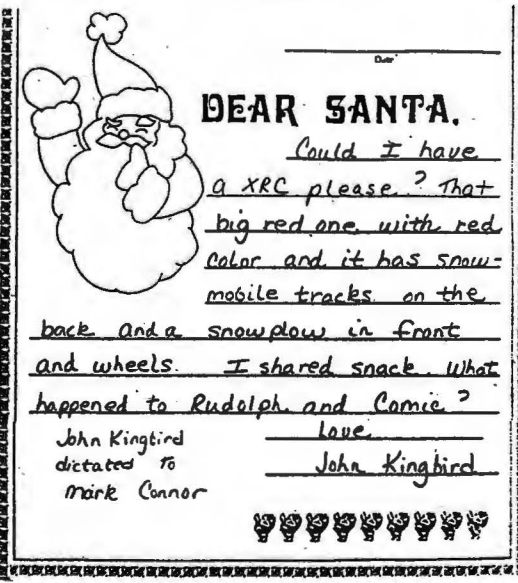 Date
DEAR SANTA,
Could I have
a XRC please? That
big red one with red
color and it has snow-
mobile tracks on the
back and a snowplow in front
and wheels. I shared snack. What
happened to Rudolph and Comic?
Love
John Kingbird
John Kingbird
dictated to
Mark Connor